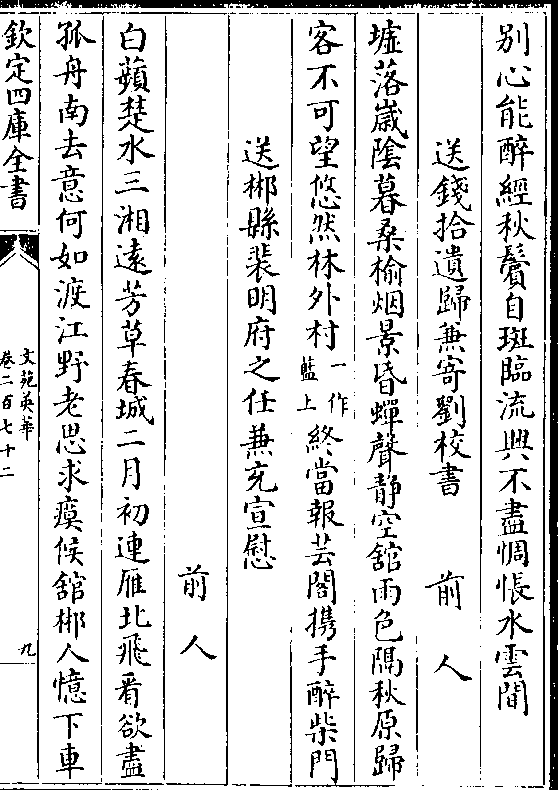 別心能醉經秋鬢自斑臨流興不盡惆悵水雲間
送錢拾遺歸兼寄劉校書　前人
墟落歲陰暮桑榆烟景昏蟬聲静空舘雨色隔秋原歸
客不可望悠然林外村一作藍上終當報芸閣携手醉柴門
送郴縣裴明府之任兼充宣慰
前人
白蘋楚水三湘遠芳草春城二月初連雁北飛看欲盡
孤舟南去意何如渡江野老思求瘼候舘郴人憶下車
欽定四庫全書
文苑英華
卷二百七十二
九